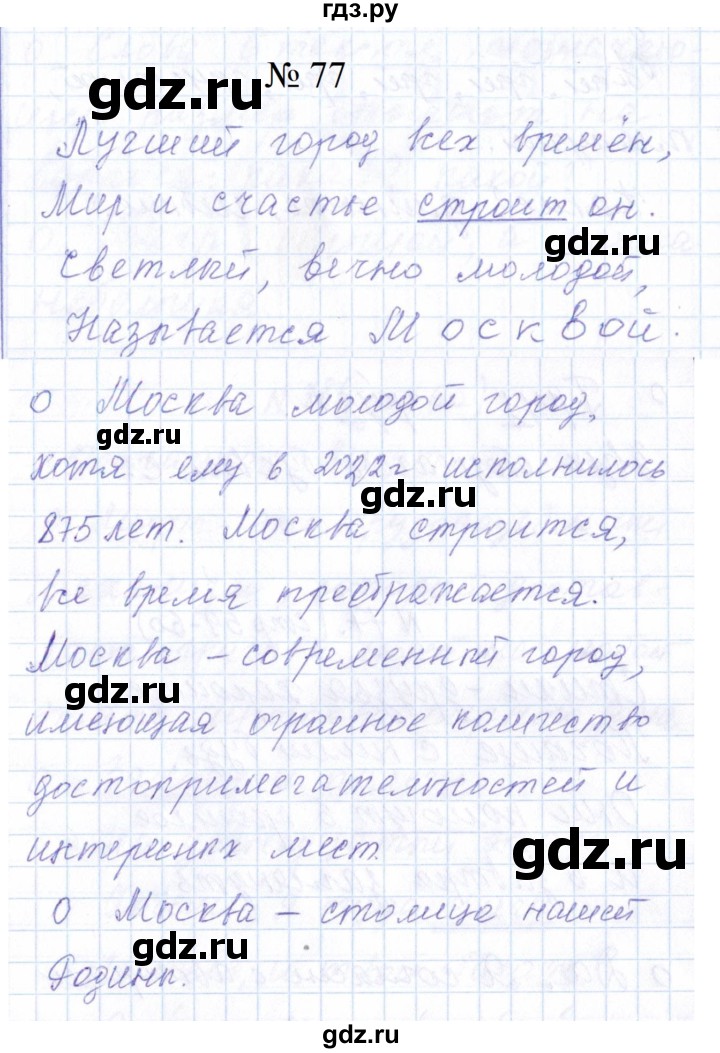 гдз.ру
gdz.ru
№ 77
Лучший город всех времён,
Мир и счастье строит он.
gdz.ru
Светлый, вечно молодой,
Называется Москвой.
о Москва молодой город,
gdz.ru
хотя ему в 2022г. исполнилось
gdz.ru
875 лет. Москва строится,
все время преображается.
Москва – современный город,
gdz.ru
имеющая огромное количество
достопримечательностей и
интересных мест.
gdz.ru
о Москва – столица нашей
gdz.ru
Родины.
gdz.ru